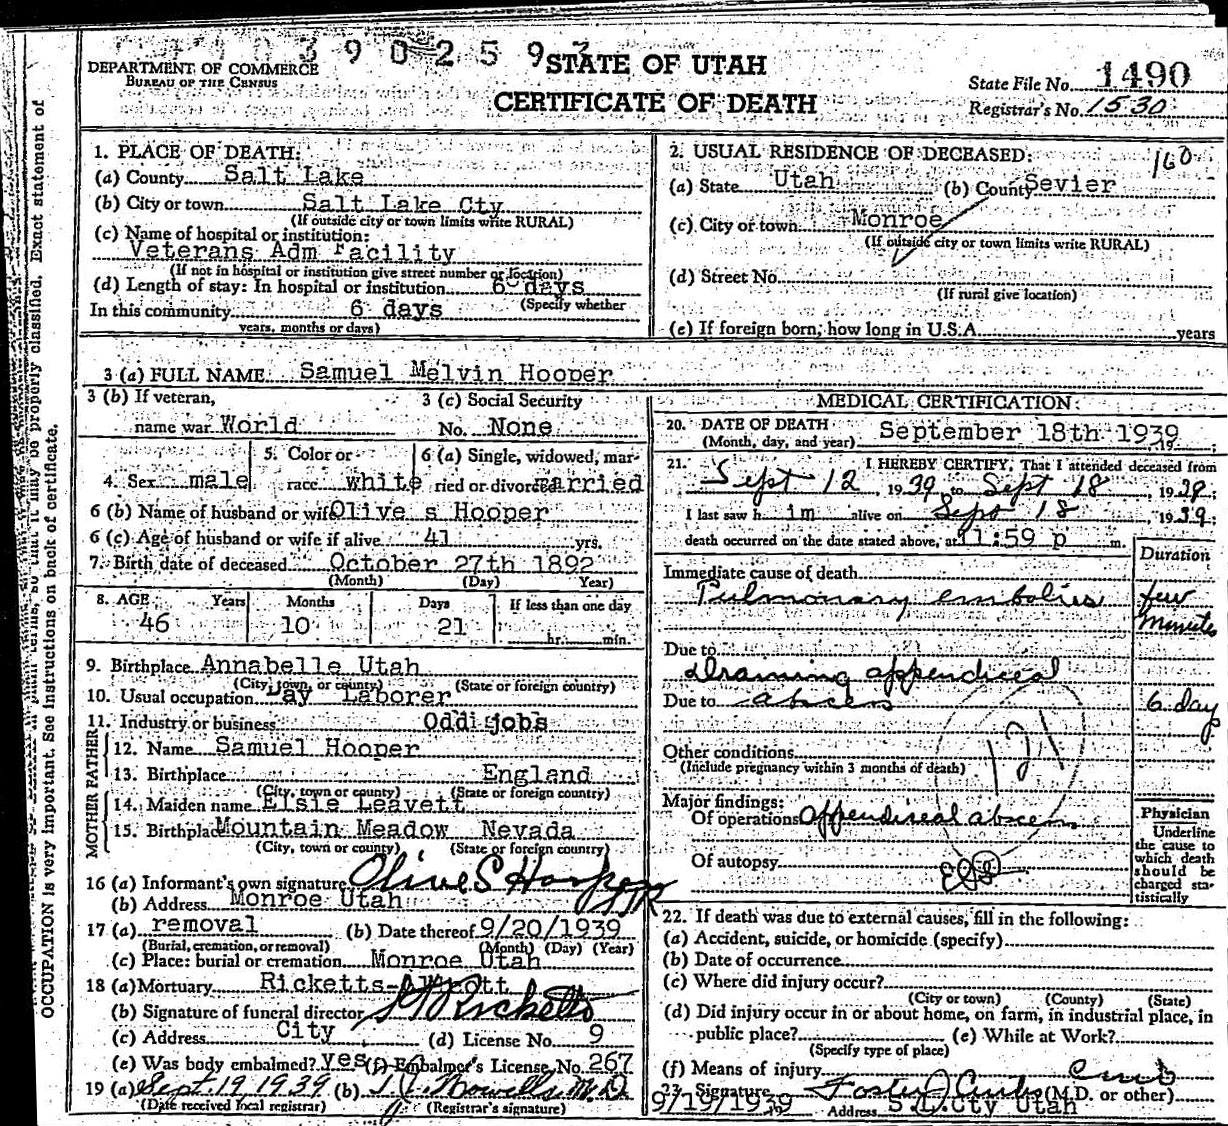 390259
DEPARTMENT OF COMMERCE
BUREAU OF THE CENSUS
STATE OF UTAH
CERTIFICATE OF DEATH
State File No. 1490
Registrar's No. 1530
160
1. PLACE OF DEATH:
(a) County Salt Lake
(b) City or town Salt Lake Cty
(If outside city or town limits write RURAL)
(c) Name of hospital or institution:
Veterans Adm Facility
(If not in hospital or institution give street number or location)
(d) Length of stay: In hospital or institution 6 days
(Specify whether
In this community 6 days
years, months or days)
2. USUAL RESIDENCE OF DECEASED:
(a) State Utah (b) County Sevier
(c) City or town Monroe
(If outside city or town limits write RURAL)
(d) Street No.
(If rural give location)
(e) If foreign born, how long in U.S.A. years
3 (a) FULL NAME Samuel Melvin Hooper
3 (b) If veteran, name war World
3 (c) Social Security No. None
4. Sex male
5. Color or race white
6 (a) Single, widowed, married or divorced married
6 (b) Name of husband or wife Olive s Hooper
6 (c) Age of husband or wife if alive 41 yrs.
7. Birth date of deceased October 27th 1892
(Month) (Day) Year)
8. AGE Years Months Days If less than one day
46 10 21 hr. min.
9. Birthplace Annabelle Utah
(City, town, or county) (State or foreign country)
10. Usual occupation Day Laborer
11. Industry or business Odd jobs
FATHER
12. Name Samuel Hooper
13. Birthplace England
(City, town or county) (State or foreign country)
MOTHER
14. Maiden name Elsie Leavett
15. Birthplace Mountain Meadow Nevada
(City, town or county) (State or foreign country)
16 (a) Informant's own signature Olive S Hooper
(b) Address Monroe Utah
17 (a) removal (b) Date thereof 9/20/1939
(Burial, cremation, or removal) (Month) (Day) (Year)
(c) Place: burial or cremation Monroe Utah
18 (a) Mortuary Ricketts-
(b) Signature of funeral director Ricketts
(c) Address City (d) License No. 9
(e) Was body embalmed? yes (f) Embalmer's License No. 267
19 (a) Sept. 19, 1939 (b) M.D.
(Date received local registrar) (Registrar's signature)
MEDICAL CERTIFICATION
20. DATE OF DEATH
(Month, day, and year) September 18th 1939
21. I HEREBY CERTIFY, That I attended deceased from
Sept 12, 1939, to Sept 18, 1939;
I last saw h im alive on Sept 18, 1939;
death occurred on the date stated above, at 11:59 p m.
Duration
Immediate cause of death
Pulmonary embolies few minutes
Due to
Draining appendiceal
Due to abcess 6 day
121
Other conditions
(Include pregnancy within 3 months of death)
Major findings:
Of operations appendiceal abcess
Of autopsy
Physician
Underline
the cause to
which death
should be
charged sta-
tistically
22. If death was due to external causes, fill in the following:
(a) Accident, suicide, or homicide (specify)
(b) Date of occurrence
(c) Where did injury occur?
(City or town) (County) (State)
(d) Did injury occur in or about home, on farm, in industrial place, in
public place? (e) While at Work?
(Specify type of place)
(f) Means of injury
23. Signature Foster J Curtis (M.D. or other)
9/19/1939 Address S.L.Cty Utah
OCCUPATION is very important. See instructions on back of certificate.
it may be properly classified. Exact statement of